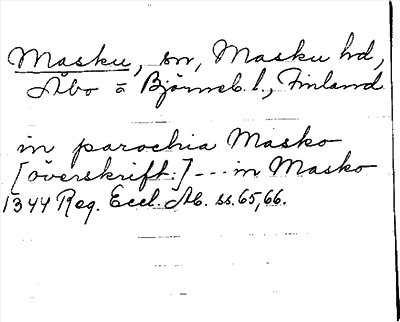 Masku, sn, Masku hd,
Åbo o Björneb. l., Finland
in parochia Masko
[överskrift:] --- in Masko
1344 Reg. Eccl. Ab. ss. 65, 66.